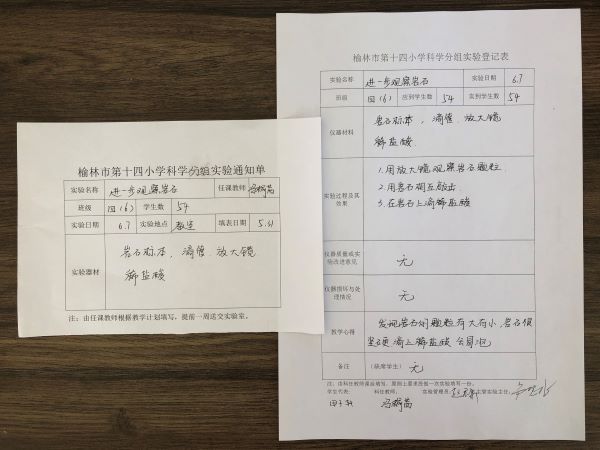 榆林市第十四小学科学分组实验通知单
实验名称 进一步观察岩石 任课教师
班级 四(6) 学生数 54
实验日期 6.7 实验地点 教室 填表日期 5.31
实验器材 岩石标本，滴管 放大镜
稀盐酸
注：由任课教师根据教学计划填写，提前一周送交实验室。
榆林市第十四小学科学分组实验登记表
实验名称 进一步观察岩石 实验日期 6.7
班级 四(6) 应到学生数 54 实到学生数 54
仪器材料 岩石标本，滴管 放大镜
稀盐酸
实验过程及其效果
1.用放大镜观察岩石颗粒
2.用岩石相互敲击
3.在岩石上滴稀盐酸
仪器质量或实验改进意见 无
仪器损坏与处理情况 无
教学心得 发现岩石的颗粒有大有小，岩石很
坚硬 滴上稀盐酸 会冒泡
备注 (缺席学生) 无
注：由科任教师课后填写，原则上要求应做一次实验填写一份。
学生代表： 科任教师： 实验管理员： 主管实验主任：